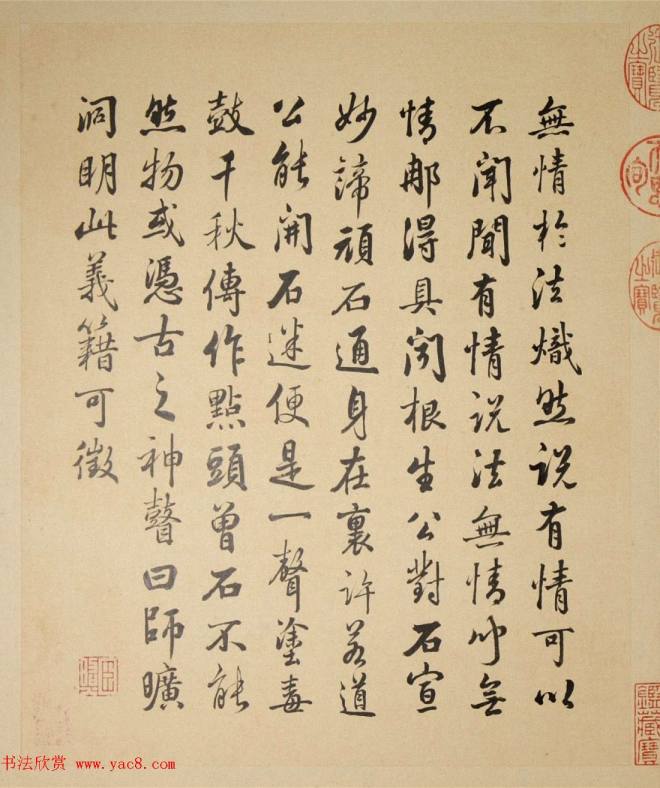 無情於法熾然説有情可以
不聞聞有情説法無情無
情那得具聞根生公對石宣
妙諦頑石通身在裏許若道
公能開石迷便是一聲塗毒
鼓千秋傳作點頭曾石不能
然物或憑古之神瞽曰師曠
洞明此義籍可徵
书法欣赏 www.yac8.com